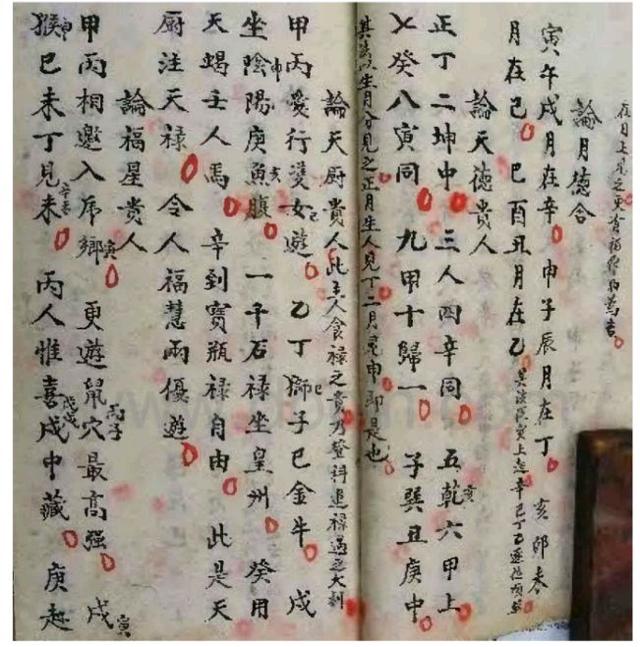 在月上見之更有福祿
論月德合
寅午戌月在辛 申子辰月在丁 亥卯未
月在己 巳酉丑月在乙 其法從寅上起辛己丁乙
論天德貴人
正丁二坤中 三人四辛同 五乾亥六甲上
乂癸八寅同 九甲十歸一 子巽丑庚中
其法以生月分見之正月生人見丁二月見申即是也
論天厨貴人此主人食祿之貴乃登科進祿過之大利
甲丙愛行雙女遊巳 乙丁獅子巳金牛 戌
坐陰陽申庚魚腹亥 一千石祿坐皇州 癸用
天蝎壬人馬 辛到寶瓶祿自由 此是天
厨注天祿 令人福慧兩優遊
論福星貴人
甲丙相邀入虎鄉寅 更遊鼠穴最高强 戌
猴申巳未丁見未 丙人惟喜戌中藏 庚趁